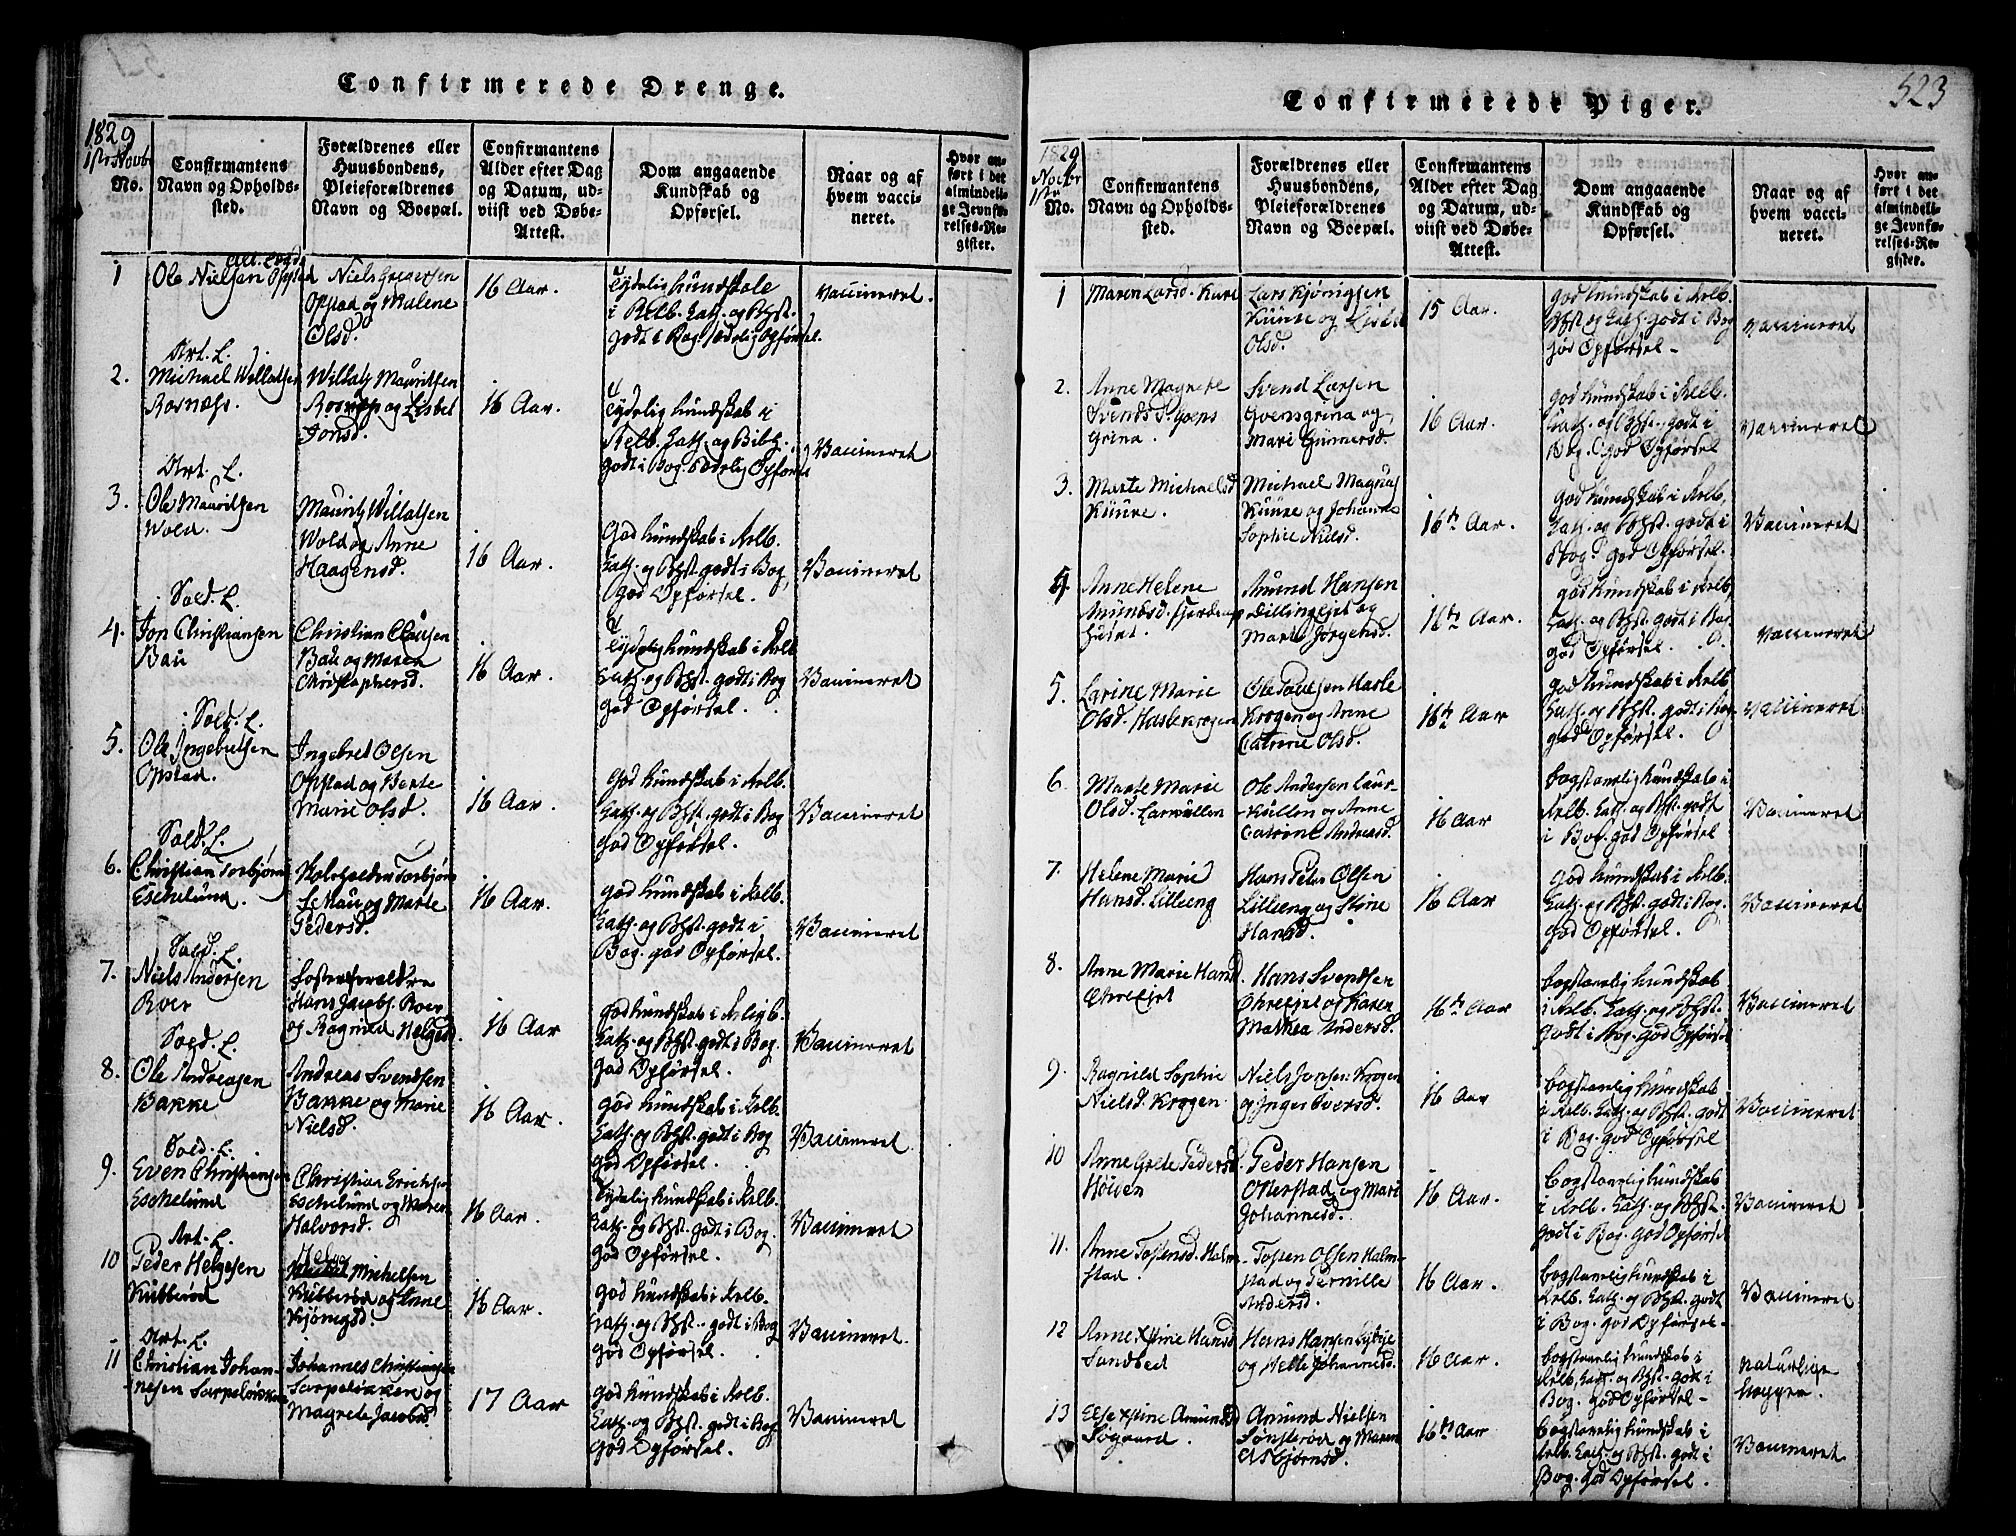 Confirmerede Drenge.
1829
1ste Novbr
No.
Confirmantens
Navn og Opholds-
sted.
Forældrenes eller
Huusbondens,
Pleieforældrenes
Navn og Boepæl.
Confirmantens
Alder efter Dag
og Datum, ud-
viist ved Døbe-
Attest.
Dom angaaende
Kundskab og
Opførsel.
Naar og af
hvem vacci-
neret.
Hvor an-
ført i det
almindeli-
ge Jevnfø-
relses-Re-
gister.
1
Ole Nielsen Opstad
Niels
Opstad og Malene
Olsd.
16 Aar.
Tydelig kundskab
i Relb. Cath. og Bhst.
godt i Bog. sædelig Opførsel.
Vaccineret.
2.
Art. L.
Michael Willatsen
Rosnæss.
Willatz Mauritsen
Rosnæss og Lisbet
Jonsd.
16 Aar.
Tydelig kundskab i
Relb. Cath. og Bibh.
godt i Bog. sædelig Opførsel
Vaccineret
3.
Art. L.
Ole Mauritsen
Wold.
Mauritz Willatsen
Wold og Anne
Haagensd.
16 Aar.
God kundskab i Relb.
Cath. og Bhst. godt i Bog,
God Opførsel.
Vaccineret
4.
Sold. L.
Jon Christiansen
Bau
Christian Clausen
Bau og Maren
Christophersd.
16 Aar.
Tydelig kundskab i Relb
Cath. og Bhst. godt i Bog
god Opførsel.
Vaccineret
5.
Sold. L.
Ole Ingebretsen
Opstad.
Ingebret Olsen
Opstad og Berte
Marie Olsd.
16 Aar.
God kundskab i Relb.
Cath. og Bhst. godt i Bog
God Opførsel.
Vaccineret
6.
Sold. L.
Christian Torbjørns
Eschelund.
Skoleholder Torbjørn
og Marte
Pedersd.
16 Aar.
God kundskab i Relb.
Cath. og Bhst. godt i
Bog. god Opførsel.
Vaccineret
7.
Sold. L.
Niels Andersen
Roer
Fosterforældre
Hans Jacobs. Roer
og Ragnild Helgesd.
16 Aar
god kundskab i Religb.
Cath. og Bhst. godt i Bog.
God Opførsel.
Vaccineret
8.
Sold. L.
Ole Andreasen
Bakke
Andreas Svendsen
Bakke og Marie
Nielsd.
16 Aar.
God kundskab i Relb.
Cath. og Bhst. godt i Bog
god Opførsel.
Vaccineret.
9.
Sold. L.
Even Christiansen
Eschelund
Christian Erichsen
Eschelund og Maren
Halvorsd.
16 Aar.
Tydelig kundskab i Relb.
Cath. og Bhst. godt i Bog.
god Opførsel.
Vaccineret
10
Art. L.
Peder Helgesen
Kubberød
Helge
Michelsen
Kubberød og Anne
Kjønigsd.
16 Aar.
God kundskab i Relb.
Cath. og Bhst. godt i Bog
God Opførsel.
Vaccineret.
11
Art. L.
Christian Johan-
nesen Sarpeløkken
Johannes Christiansen
Sarpeløkken og
Magrete Jacobsd.
17 Aar
god kundskab i Relb.
Cath. og Bhst. godt i Bog
God Opførsel.
Vaccineret
523
Confirmerede Piger.
1829
Novbr
1ste
No.
Confirmantens
Navn og Opholds-
sted.
Forældrenes eller
Huusbondens,
Pleieforældrenes
Navn og Boepæl.
Confirmantens
Alder efter Dag
og Datum, ud-
viist ved Døbe-
Attest.
Dom angaaende
Kundskab og
Opførsel.
Naar og af
hvem vacci-
neret.
Hvor an-
ført i det
almindeli-
ge Jevnfø-
relses-Re-
gister.
1
Maren Larsd. Kure
Lars Kjønigsen
Kuure og Lisbet
Olsd.
15 Aar.
god kundskab i Relb.
Bhst og Cath. godt i Bog
god Opførsel -
Vaccineret
2.
Anne Magrete
Svends d. goens
grina.
Svend Larsen
Goensgrina og
Mari Gunnersd.
16 Aar.
god kundskab i Relb.
Cath. og Bhst. godt i
Bog. god Opførsel
Vaccineret
3.
Marte Michaelsd
Kuure.
Michael Magnus
Kuure og Johanne
Sophie Nielsd.
16 Aar.
god kundskab i Relb.
Cath. og Bhst. godt i
Bog. god Opførsel.
Vaccineret
4
Anne Helene
Amundsd.
Amund Hansen
Dillingejet og
Marte Jørgensd.
16 Aar.
god kundskab i Relb,
Cath. og Bhst. godt i Bog
god Opførsel.
Vaccineret
5.
Larine Marie
Olsd. Haslekrogen
Ole Paulsen Hasle
Krogen og Anne
Catrine Olsd.
16 Aar
god kundskab i Relb
Cath. og Bhst. godt i Bog
god Opførsel.
Vaccineret
6.
Marte Marie
Olsd. Larkullen
Ole Andersen Laur-
Kullen og Anne
Catrine Andersd.
16 Aar
bogstavelig kundskab i
Relb. Cath. og Bhst. godt
i Bog. god Opførsel
Vaccineret
7.
Helene Marie
Hansd. Lilleeng
Hans Peter Olsen
Lilleeng og Stine
Hansd.
16 Aar
god kundskab i Relb.
Cath. og Bhst. godt i Bog.
god Opførsel.
Vaccineret
8.
Anne Marie Hansd
Ekreejet
Hans Svendsen
Ekreejet og Karen
Mathea Andersd.
16 Aar
bogstavelig kundskab
i Relb. Cath. og Bhst.
godt i Bog. god Opførsel
Vaccineret
9.
Ragnild Sophie
Nielsd. Krogen
Niels Jonsen Krogen
og Inge Iversd.
16 Aar
bogstavelig kundskab
i Relb. Cath. og Bhst. godt
i Bog. god Opførsel
Vaccineret
10
Anne Grete Pedersd
Høien
Peder Hansen
Otterstad og Mari
Johannesd.
16 Aar.
bogstavelig kundskab
i Relb. Cath. og Bhst.
godt i Bog. God Opførsel
Vaccineret
11.
Anne Tostensd. Halm
stad.
Tosten Olsen Halm-
stad og Pernille
Andersd.
16 Aar.
bogstavelig kundskab i
Relb. Cath. og Bhst. godt
i Bog. god Opførsel-
Vaccineret
12
Anne Xstine Hansd
Sandbed
Hans Hansen
og Helle Johannesd.
16 Aar.
bogstavelig kundskab i
Relb. Cath. og Bhst. godt i
Bog. god Opførsel -
naturlige
kopper.
13
Else Xstine Amundsd
Søgaard.
Amund Nielsen
Sønsterød og Maren
Esbjørnsd.
16 Aar
bogstavelig kundskab i
Relb. Cath. og Bhst. godt i
Bog. god Opførsel.
Vaccineret